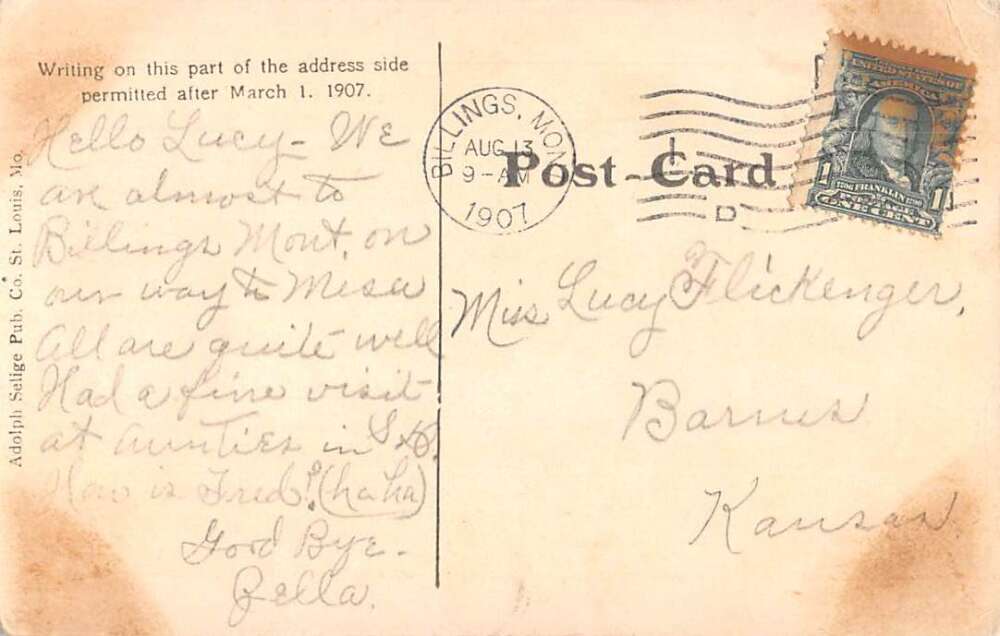 Writing on this part of the address side
permitted after March 1. 1907.
Hello Lucy – We
are almost to
Billings Mont. on
our way to Mesa
All are quite well
Had a fine visit
at Aunties in S.D.
How is Fred? (ha ha)
Good Bye –
Zella.
Adolph Selige Pub. Co. St. Louis, Mo.
BILLINGS, MON
AUG 13
9-AM
1907
Post-Card
D
UNITED STATES OF
AMERICA
1706 FRANKLIN 1790
1 ONE CENT 1
Miss Lucy Flickenger,
Barnes
Kansas.